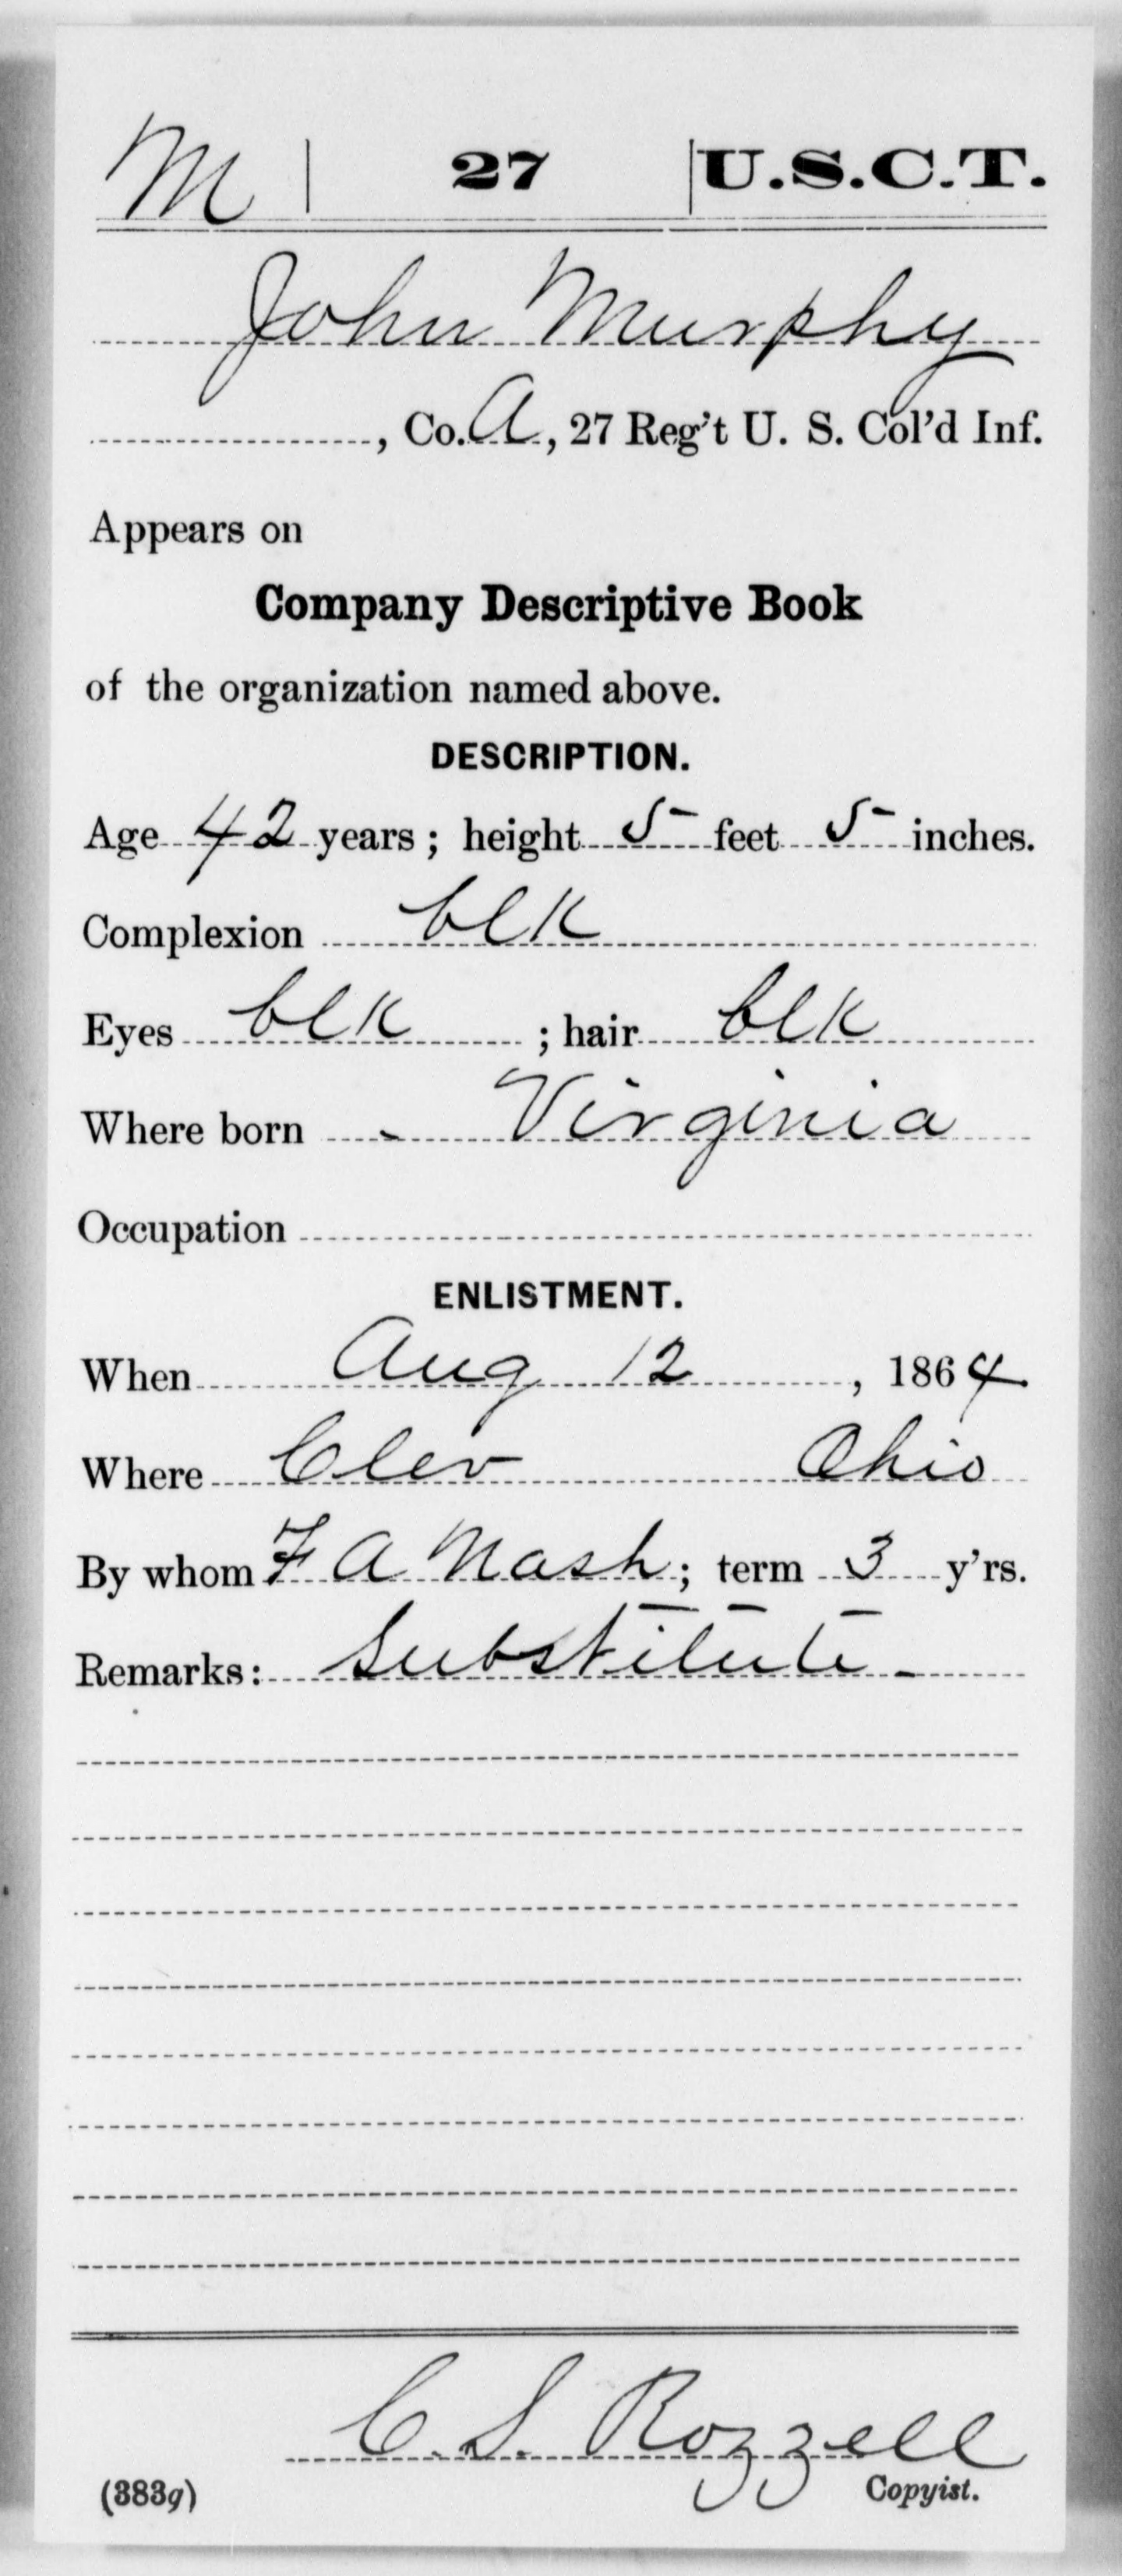 M | 27 | U.S.C.T.
John Murphy
, Co. A, 27 Reg't U. S. Col'd Inf.
Appears on
Company Descriptive Book
of the organization named above.
DESCRIPTION.
Age 42 years; height 5 feet 5 inches.
Complexion blk
Eyes blk; hair blk
Where born Virginia
Occupation
ENLISTMENT.
When Aug 12, 1864
Where Clev Ohio
By whom F A Nash; term 3 y'rs.
Remarks: Substitute
C. S. Rozzell
(383g) Copyist.